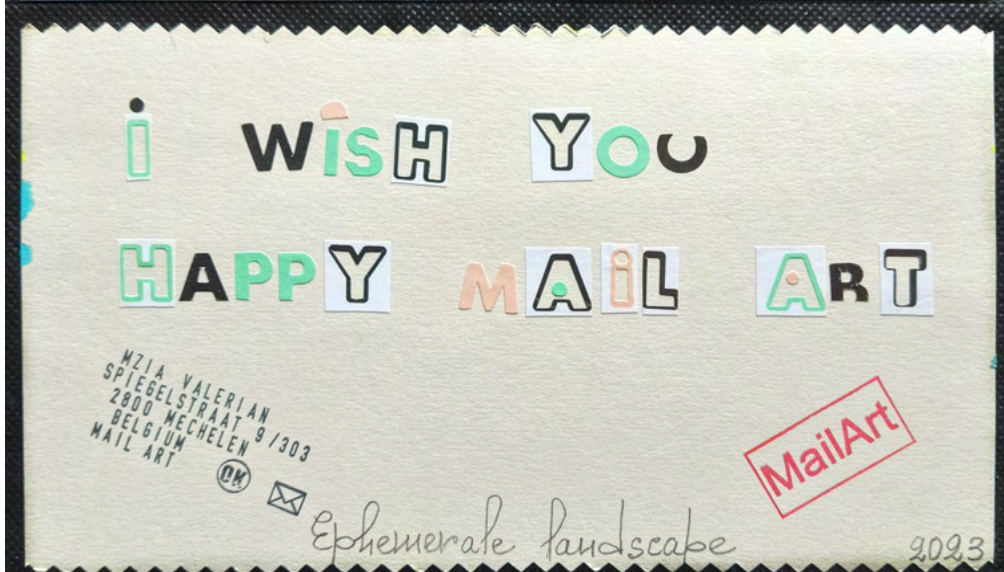 i WiSH YOU
HAPPY MAiL ART
MZIA VALERIAN
SPIEGELSTRAAT 9/303
2800 MECHELEN
BELGIUM
MAIL ART
OK
MailArt
Ephemerale landscape
2023